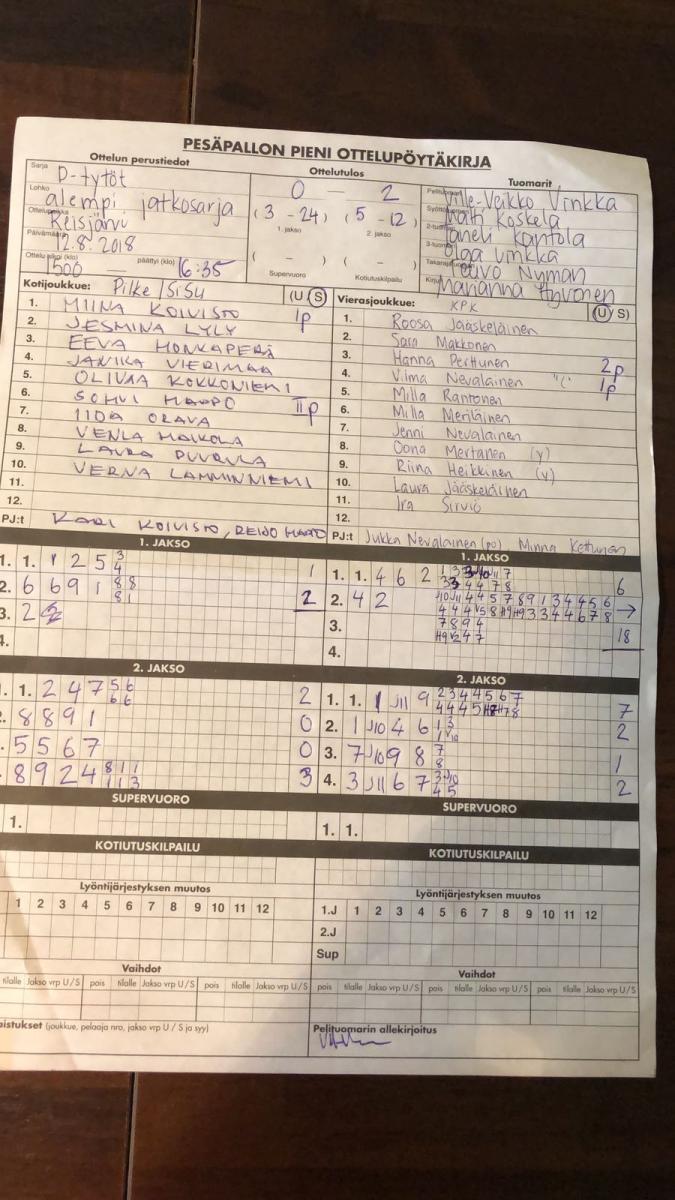 PESÄPALLON PIENI OTTELUPÖYTÄKIRJA
Ottelun perustiedot
Ottelutulos
Tuomarit
Sarja D-tytöt
Lohko alempi jatkosarja
Reisjärvi
12.8.2018
1500 — päättyi (klo) 16:35
0 — 2
(3 - 24) (5 - 12)
1. jakso 2. jakso
( - ) ( - )
Supervuoro Kotiutuskilpailu
Ville-Veikko Vinkka
Matti Koskela
Taneli Kantola
Olga Vinkka
Teuvo Nyman
Marianna Hyvönen
Kotijoukkue: Pilke / SiSu (U S)
1. MIINA KOIVISTO 1p
2. JESMINA LYLY
3. EEVA HONKAPERÄ
4. JANIKA VIERIMAA
5. OLIVIA KOKKONIEMI
6. SOHVI HAAPO IIp
7. IIDA ORAVA
8. VENLA MAIKOLA
9. LAURA PUURULA
10. VERNA LAMMINNIEMI
11.
12.
PJ:t KARI KOIVISTO, REIJO HAAPO
Vierasjoukkue: KPK (U S)
1. Roosa Jääskeläinen
2. Sara Makkonen
3. Hanna Perttunen 2p
4. Vilma Nevalainen "C" 1p
5. Milla Rantonen
6. Milla Meriläinen
7. Jenni Nevalainen
8. Oona Mertanen (y)
9. Riina Heikkinen (y)
10. Laura Jääskeläinen
11. Ira Sirviö
12.
PJ:t Jukka Nevalainen (po) Minna Kettunen
1. JAKSO
1. 1. 1 2 5 3 1
4
2. 6 6 9 1 8 8 2
8 1
3. 2
4.
1. JAKSO
1. 1. 4 6 2 6
2. 4 2 J10 J11 4 4 5 7 8 9 1 3 4 4 5 6 →
3. 7 8 9 4 18
4.
2. JAKSO
1. 1. 2 4 7 5 6 2
6 6
8 8 9 1 0
5 5 6 7 0
8 9 2 4 8 1 1 3
1 1 3
2. JAKSO
1. 1. 1 J11 9 2 3 4 4 5 6 7 7
2. 1 J10 4 6 1 3 2
3. 7 J10 9 8 7 1
8
4. 3 J11 6 7 3 J10 2
4 5
SUPERVUORO
1.
SUPERVUORO
1. 1.
KOTIUTUSKILPAILU
KOTIUTUSKILPAILU
Lyöntijärjestyksen muutos
1 2 3 4 5 6 7 8 9 10 11 12
Lyöntijärjestyksen muutos
1.J 1 2 3 4 5 6 7 8 9 10 11 12
2.J
Sup
Vaihdot
tilalle Jakso vrp U / S pois tilalle Jakso vrp U / S pois tilalle Jakso vrp U / S
Vaihdot
pois tilalle Jakso vrp U / S pois tilalle Jakso vrp U / S pois tilalle Jakso vrp U / S
aistukset (joukkue, pelaaja nro, jakso vrp U / S ja syy)
Pelituomarin allekirjoitus